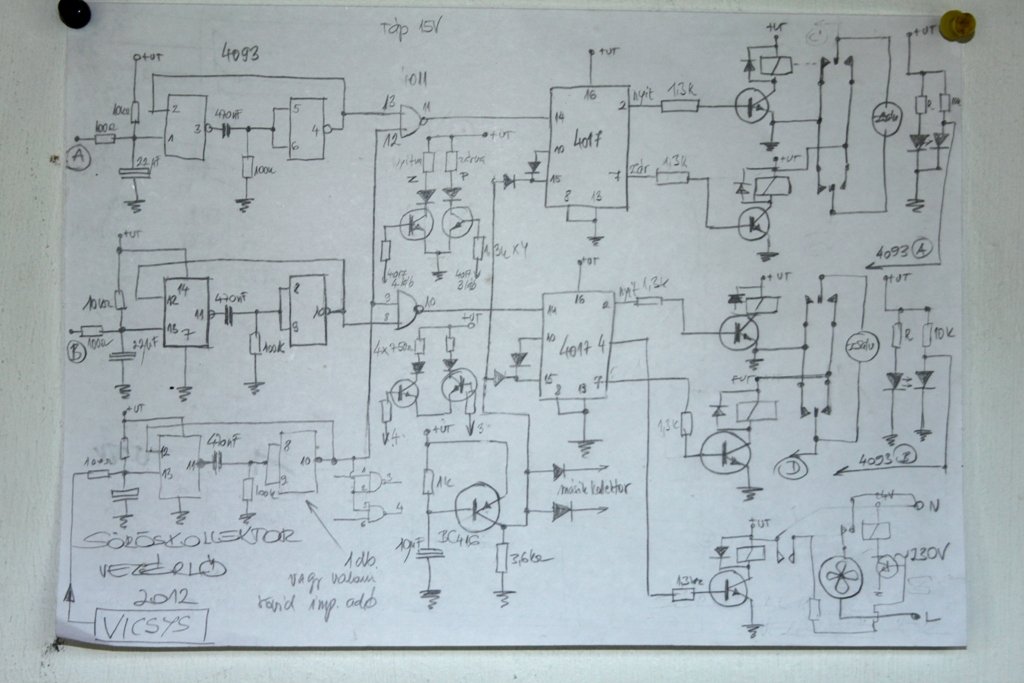 Táp 15V
+UT
4093
2
1
3
470nF
5
6
4
100Ω
A
22µF
100k
4011
13
12
11
+UT
nyitva
zárva
Z
P
1,3k x 4
+UT
16
14
4017
10
15
8
13
2
7
nyit
1,3k
Zár
1,3k
+UT
+UT
+UT
R
10k
4093 A
+UT
10kΩ
100Ω
B
22µF
14
12
13
7
11
470nF
100k
8
9
10
9
8
10
+UT
4x750Ω
4
3
+UT
16
14
10
4017
15
8
13
2
4
7
nyit
1,3k
1,3k
+UT
+UT
D
+UT
R
10k
4093 B
+UT
100Ω
12
13
11
470nF
100k
8
9
10
3
4
+UT
1k
10µF
BC416
3,6kΩ
másik kollektor
SÖRÖSKOLLEKTOR
VEZÉRLŐ
2012
VICSYS
1db.
vagy valami
rövid imp. adó
+UT
1,3k
N
230V
L